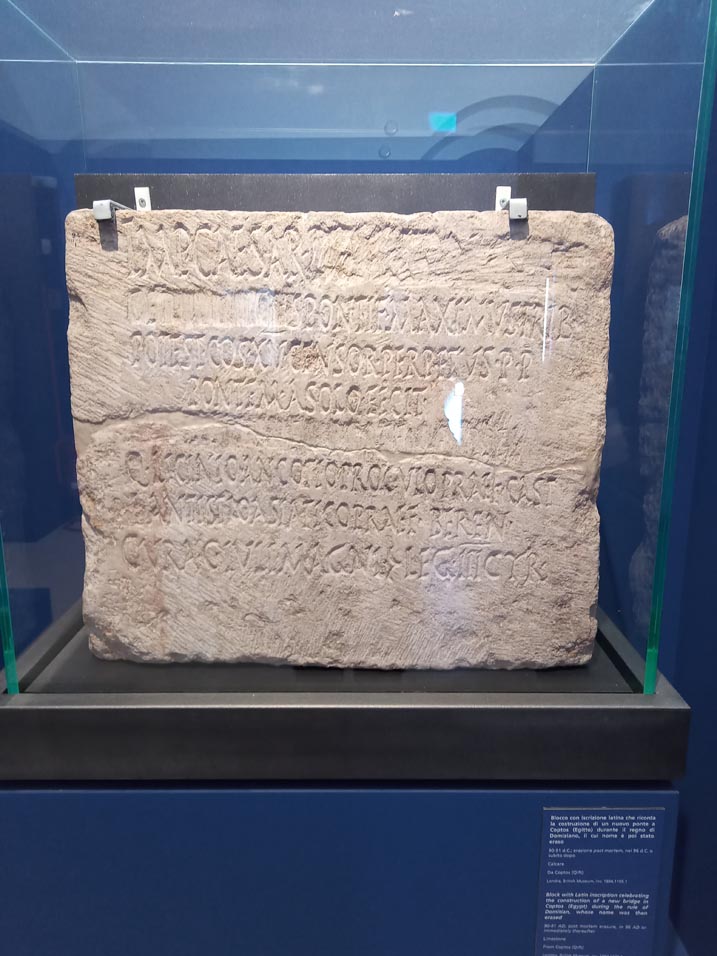 IMP CAESAR D
PONTIF MAXIMVS TRIB
POTEST COS XV CENSOR PERPETVVS P P
PONTEM A SOLO FECIT
Q LICINIO ANCOTIO PROCVLO PRAEF CAST
L ANTISTIO ASIATICO PRAEF BEREN
CVRA C IVLI MAGNI LEG III CYR
Blocco con iscrizione latina che ricorda
la costruzione di un nuovo ponte a
Coptos (Egitto) durante il regno di
Domiziano, il cui nome è poi stato
eraso
90-91 d.C.; erasione post mortem, nel 96 d.C. o
subito dopo
Calcare
Da Coptos (Qift)
Londra, British Museum, inv. 1894,1105.1
Block with Latin inscription celebrating
the construction of a new bridge in
Coptos (Egypt) during the rule of
Domitian, whose name was then
erased
90-91 AD; post mortem erasure, in 96 AD or
immediately thereafter
Limestone
From Coptos (Qift)